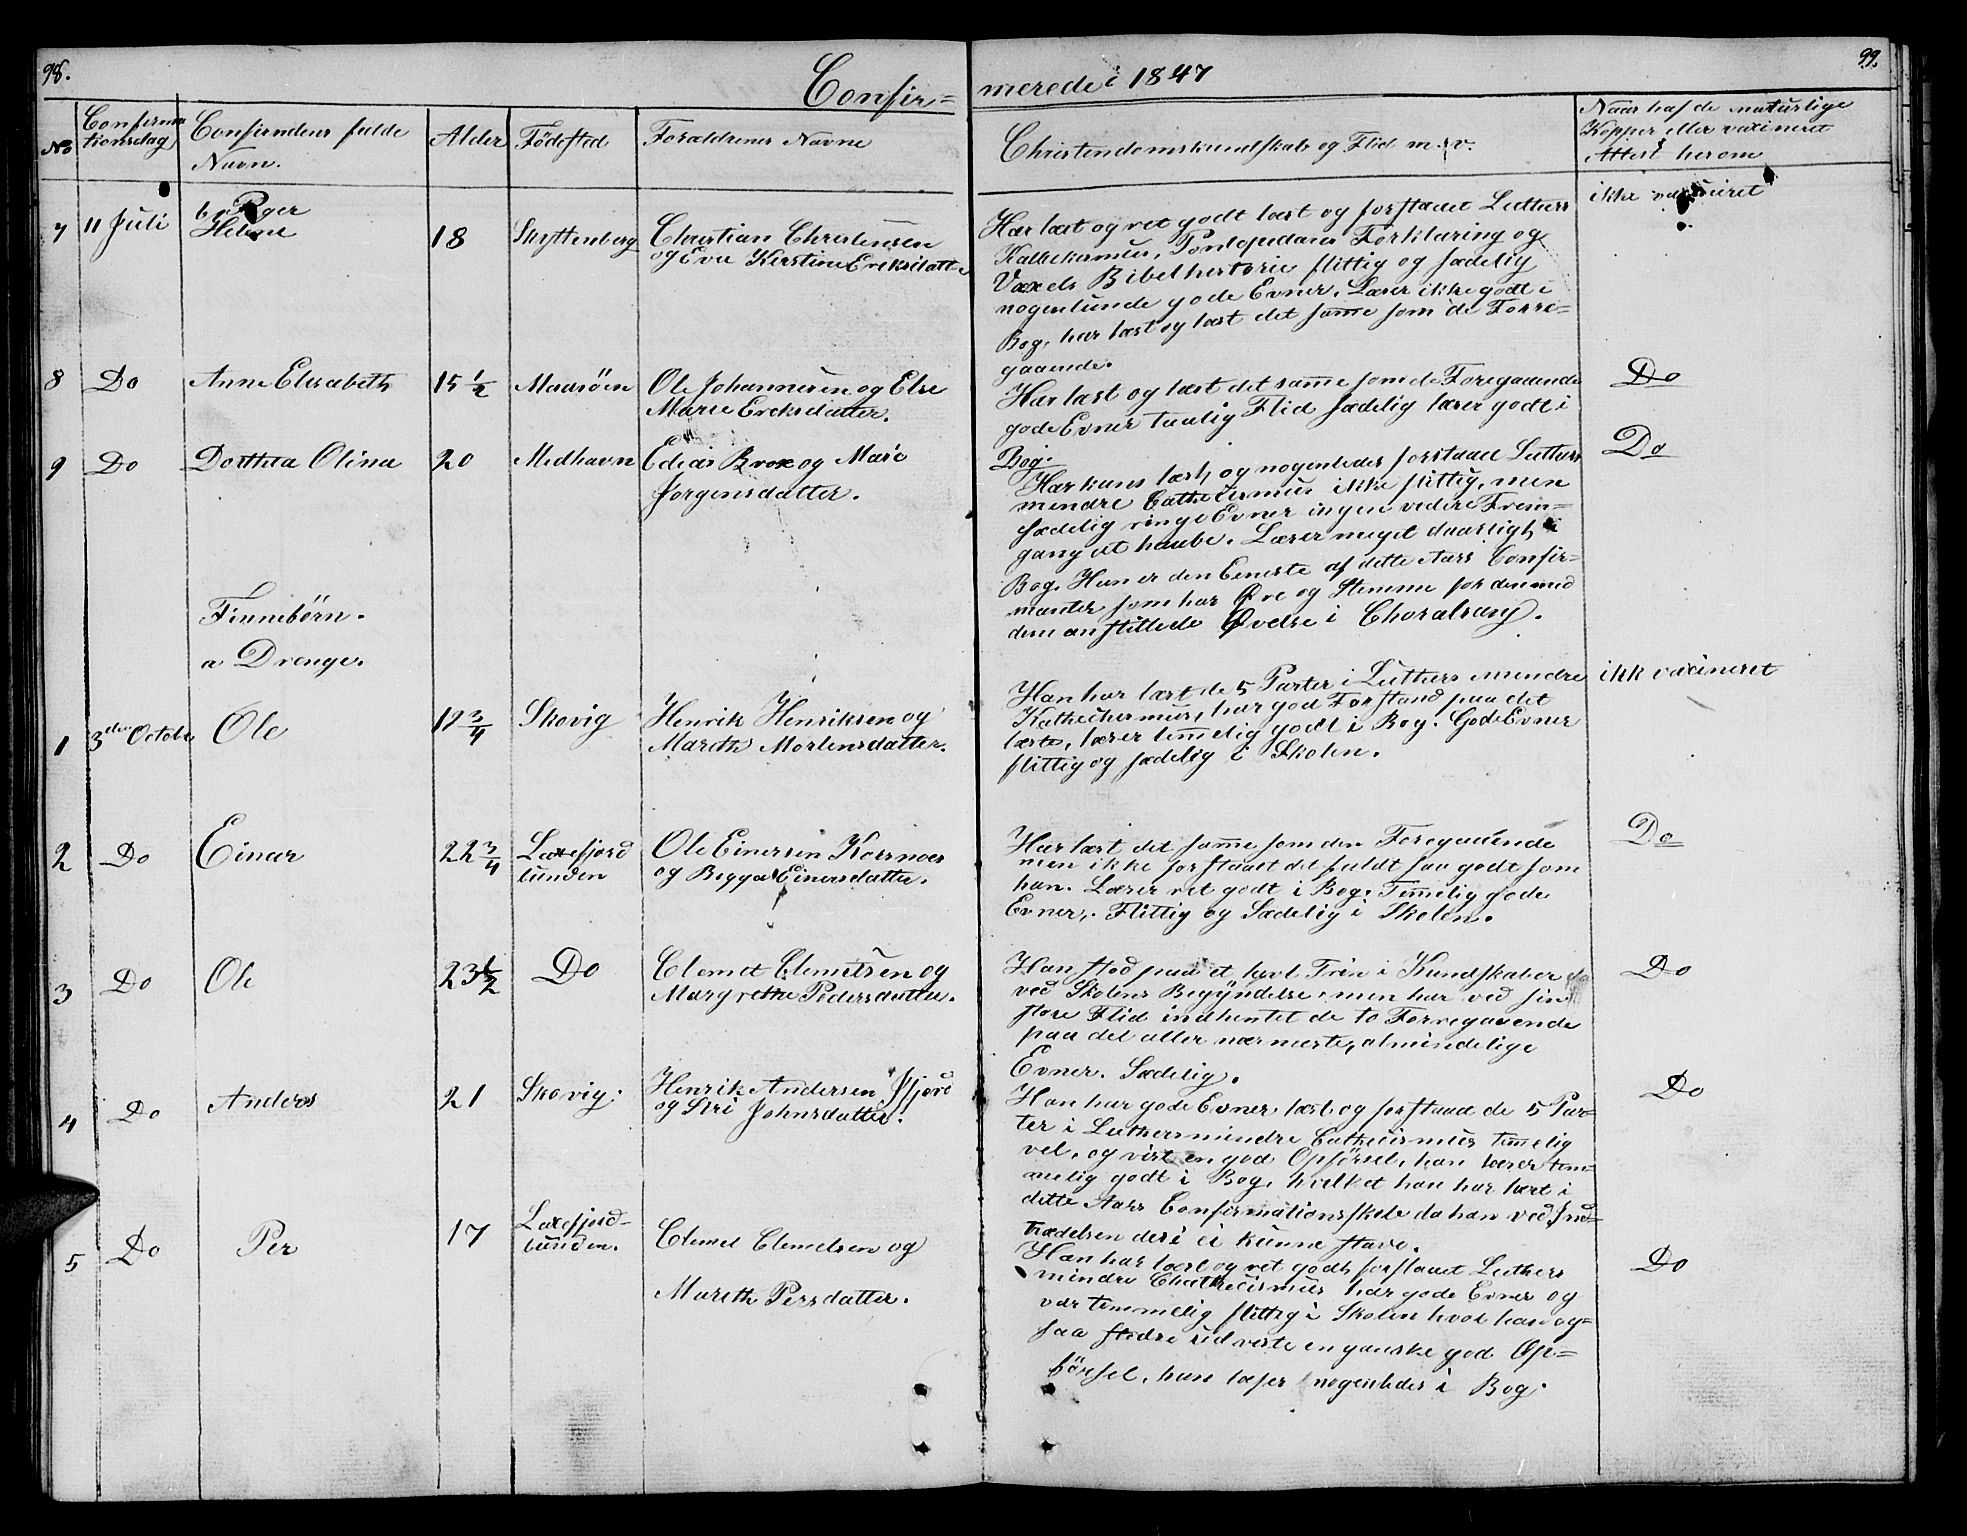 98.
99.
Confir=
merede i 1847
No
Confirma
tionsdag
Confirmdens fulde
Navn.
Alder
Födested
Forældrenes Navne
Christendomskundskab og Flid m. v.
Naar hafde naturlige
Kopper eller vaxineret
Attest herom
7
11 Juli
b, Piger
Helene
18
Christian Christensen
og Eva Kirstine Eriksdatte
Har læst og ret godt læst og forstaaet Luthers
Kathekismus, Pontopidans Forklaring og
Vaxels Bibelhistorie flittig og sædelig
nogenlunde gode Evner. Læser ikke godt i
Bog, har læst og læst det samme som de Forre=
gaaende.
ikke vaxineret
8
Do
Anne Elisabeth
15 1/2
Maasöen
Ole Johannesen og Else
Marie Ereksdatter.
Har læst og læst det samme som de Foregaaende
gode Evner taalig Flid sædelig læser godt i
Bog.
Do
9
Do
Dorthea Olina
20
Medhavn
Edias Brox og Mare
Jorgensdatter.
Har kuns læst, og nogenledes forstaaet Luthers
mindre Cathecismus ikke flittig, men
sædelig ringe Evner ingen videre Frem=
gang at haabe. Læser meget daarligt i
Bog. Hun er den Eeneste af dette Aars Confir=
manter som har Øre og Stemme for den med
dem anstillede Øvelse i Choralsang.
Do
Finnebörn.
a Drenge.
1
3die Octobr
Ole
19 3/4
Skovig
Henrik Henriksen og
Mareth Mortensdatter.
Han har læst de 5 Parter i Luthers mindre
Kathechismus, har god Forstand paa det
læste, læser temelig godt i Bog. Gode Evner
flittig og sædelig i Skolen.
ikk vaxineret
2
Do
Einar
22 3/4
Laxefjord
bunden
Ole Einersen Kornoes
og Begga Einersdatter.
Har læst det samme som den Foregaaende
men ikke forstaaet det fuldt saa godt som
han. Læser ret godt i Bog. Temelig gode
Evner. Flittig og Sædelig i Skolen.
Do
3
Do
Ole
23 1/2
Do
Clemet Clemetsen og
Margrethe Pedersdatter.
Han stod paa et lavt Trin i Kundskaber
ved Skolens Begyndelse, men har ved sin
store Flid indhentet de to Forregaaende
paa det aller nærmeste, almindelige
Evner. Sædelig.
Do
4
Do
Anders
21
Skovig.
Henrik Andersen
og Siri Johnsdatter.
Han har gode Evner, læst og forstaaet de 5 Par=
ter i Luthers mindre Cathecismus temelig
vel, og vist en god Opförsel, han læser tem=
melig godt i Bog, hvilket han har lært i
dette Aars Confirmationsskole da han ved Ind=
trædelsen deri ei kunne stave.
Do
5
Do
Per
17
Laxefjord-
bunden.
Clemet Clemetsen og
Mareth Persdatter.
Han har læst og ret godt forstaaet Luthers
mindre Chathecismus har gode Evner og
var temmelig flittig i Skolen hvor han og=
saa stedse udviste en ganske god Op=
förssel, han læser nogenledes i Bog.
Do